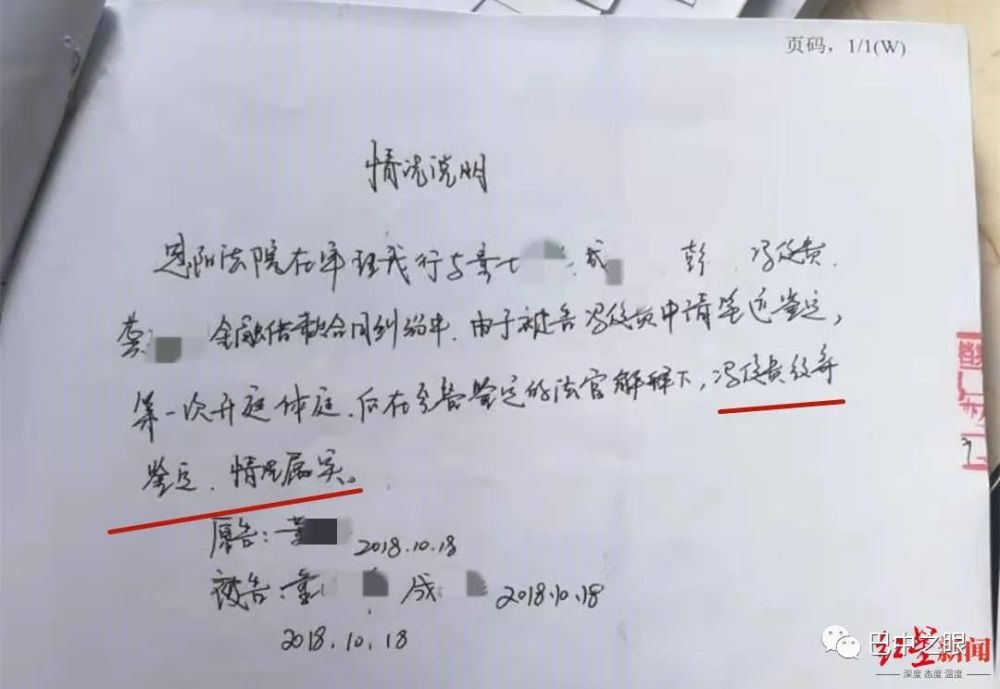 页码，1/1(W)
情况说明
恩阳法院在审理我行与 成 彭 、冯俊贵、
金融借款合同纠纷中，由于被告冯俊贵申请笔迹鉴定，
第一次开庭休庭。后在负责鉴定的法官解释下，冯俊贵放弃
鉴定，情况属实。
原告：黄 2018.10.18
被告：董 成 2018.10.18
2018.10.18
巴中之眼
红星新闻
深度 态度 温度